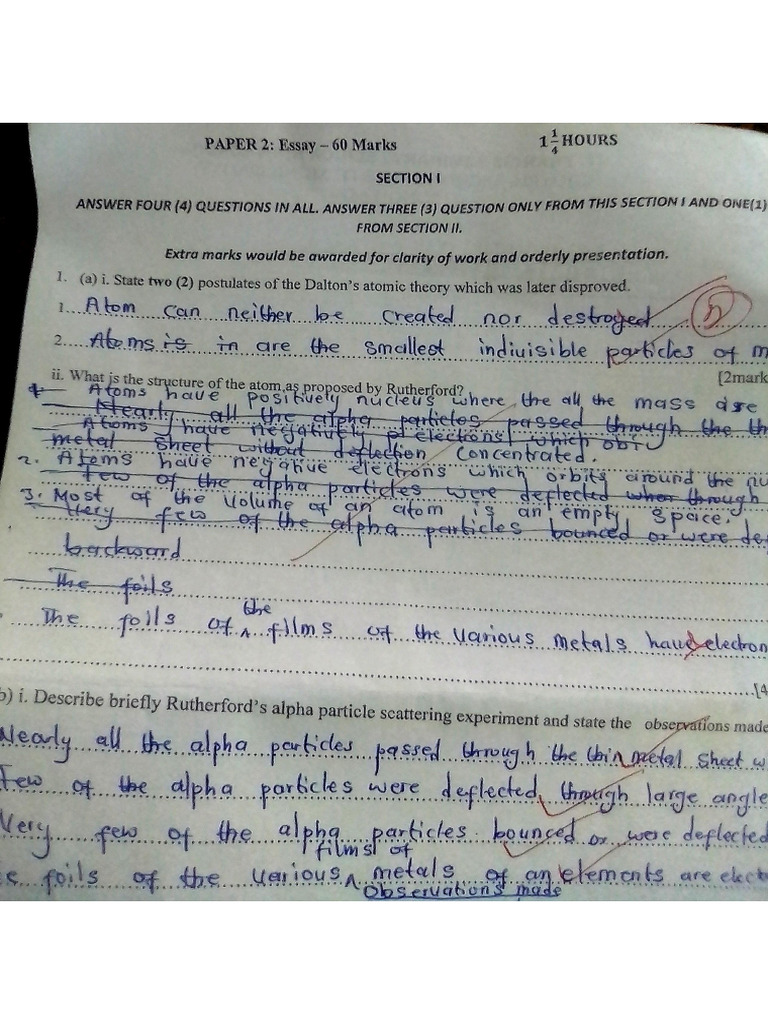 PAPER 2: Essay – 60 Marks 1 1/4 HOURS
SECTION I
ANSWER FOUR (4) QUESTIONS IN ALL. ANSWER THREE (3) QUESTION ONLY FROM THIS SECTION I AND ONE(1)
FROM SECTION II.
Extra marks would be awarded for clarity of work and orderly presentation.
1. (a) i. State two (2) postulates of the Dalton's atomic theory which was later disproved.
1. Atom can neither be created nor destroyed
2. Atoms is in are the smallest indivisible particles of m
[2mark
ii. What is the structure of the atom as proposed by Rutherford?
Atoms have positively nucleus where the all the mass are
Nearly all the alpha particles passed through the th
Atoms have negatively electrons which obit
metal sheet without deflection concentrated.
2. Atoms have negative electrons which orbits around the nu
Few of the alpha particles were deflected when through
3. Most of the volume of an atom is an empty space.
Very few of the alpha particles bounced or were de
backward
The foils
The foils of the films of the various metals have electron
[4
b) i. Describe briefly Rutherford's alpha particle scattering experiment and state the observations made
Nearly all the alpha particles passed through the thin metal sheet w
Few of the alpha particles were deflected through large angle
Very few of the alpha particles bounced or were deflected
e foils of the various films of metals of an elements are elect
Observations made